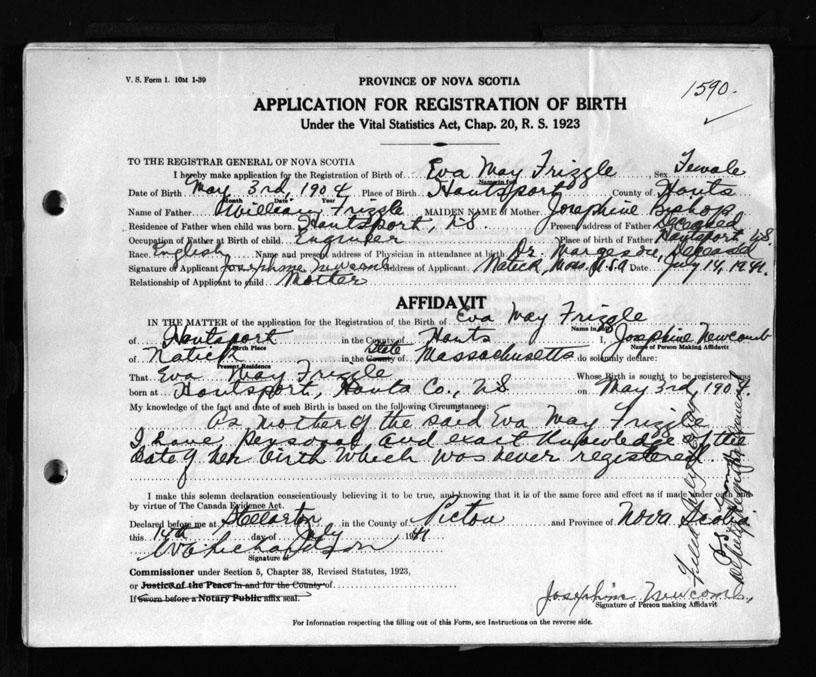 V. S. Form 1. 10M 1-39
PROVINCE OF NOVA SCOTIA
1590.
APPLICATION FOR REGISTRATION OF BIRTH
Under the Vital Statistics Act, Chap. 20, R. S. 1923
TO THE REGISTRAR GENERAL OF NOVA SCOTIA
I hereby make application for the Registration of Birth of Eva May Frizzle, Sex Female
Name in full
Date of Birth May 3rd, 1904 Place of Birth Hantsport County of Hants
Month Date Year
Name of Father William Frizzle MAIDEN NAME of Mother Josephine Bishop
Residence of Father when child was born Hantsport, N.S. Present address of Father Deceased
Occupation of Father at Birth of child Engineer Place of birth of Father Hantsport N.S.
Race English Name and present address of Physician in attendance at birth Dr. Margeson, Deceased
Signature of Applicant Josephine Newcomb Address of Applicant Natick, Mass. U.S.A Date July 14, 1941.
Relationship of Applicant to child Mother
AFFIDAVIT
IN THE MATTER of the application for the Registration of Birth of Eva May Frizzle
Name in full
of Hantsport in the County of Hants I, Josephine Newcomb
Birth Place Name of Person Making Affidavit
of Natick in the County of State Massachusetts do solemnly declare:
Present Residence
That Eva May Frizzle Whose Birth is sought to be registered was
born at Hantsport, Hants Co., N.S on May 3rd, 1904.
My knowledge of the fact and date of such Birth is based on the following Circumstances:
As Mother of the said Eva May Frizzle
I have personal and exact knowledge of the
date of her birth which was never registered
I make this solemn declaration conscientiously believing it to be true, and knowing that it is of the same force and effect as if made under oath and
by virtue of The Canada Evidence Act.
Declared before me at Stellarton in the County of Pictou and Province of Nova Scotia
this 14th day of July 1941
Signature of
Commissioner under Section 5, Chapter 38, Revised Statutes, 1923,
or Justice of the Peace in and for the County of
If Sworn before a Notary Public affix seal.
Josephine Newcomb,
Signature of Person making Affidavit
For Information respecting the filling out of this Form, see Instructions on the reverse side.
Filed July
Deputy Registrar General